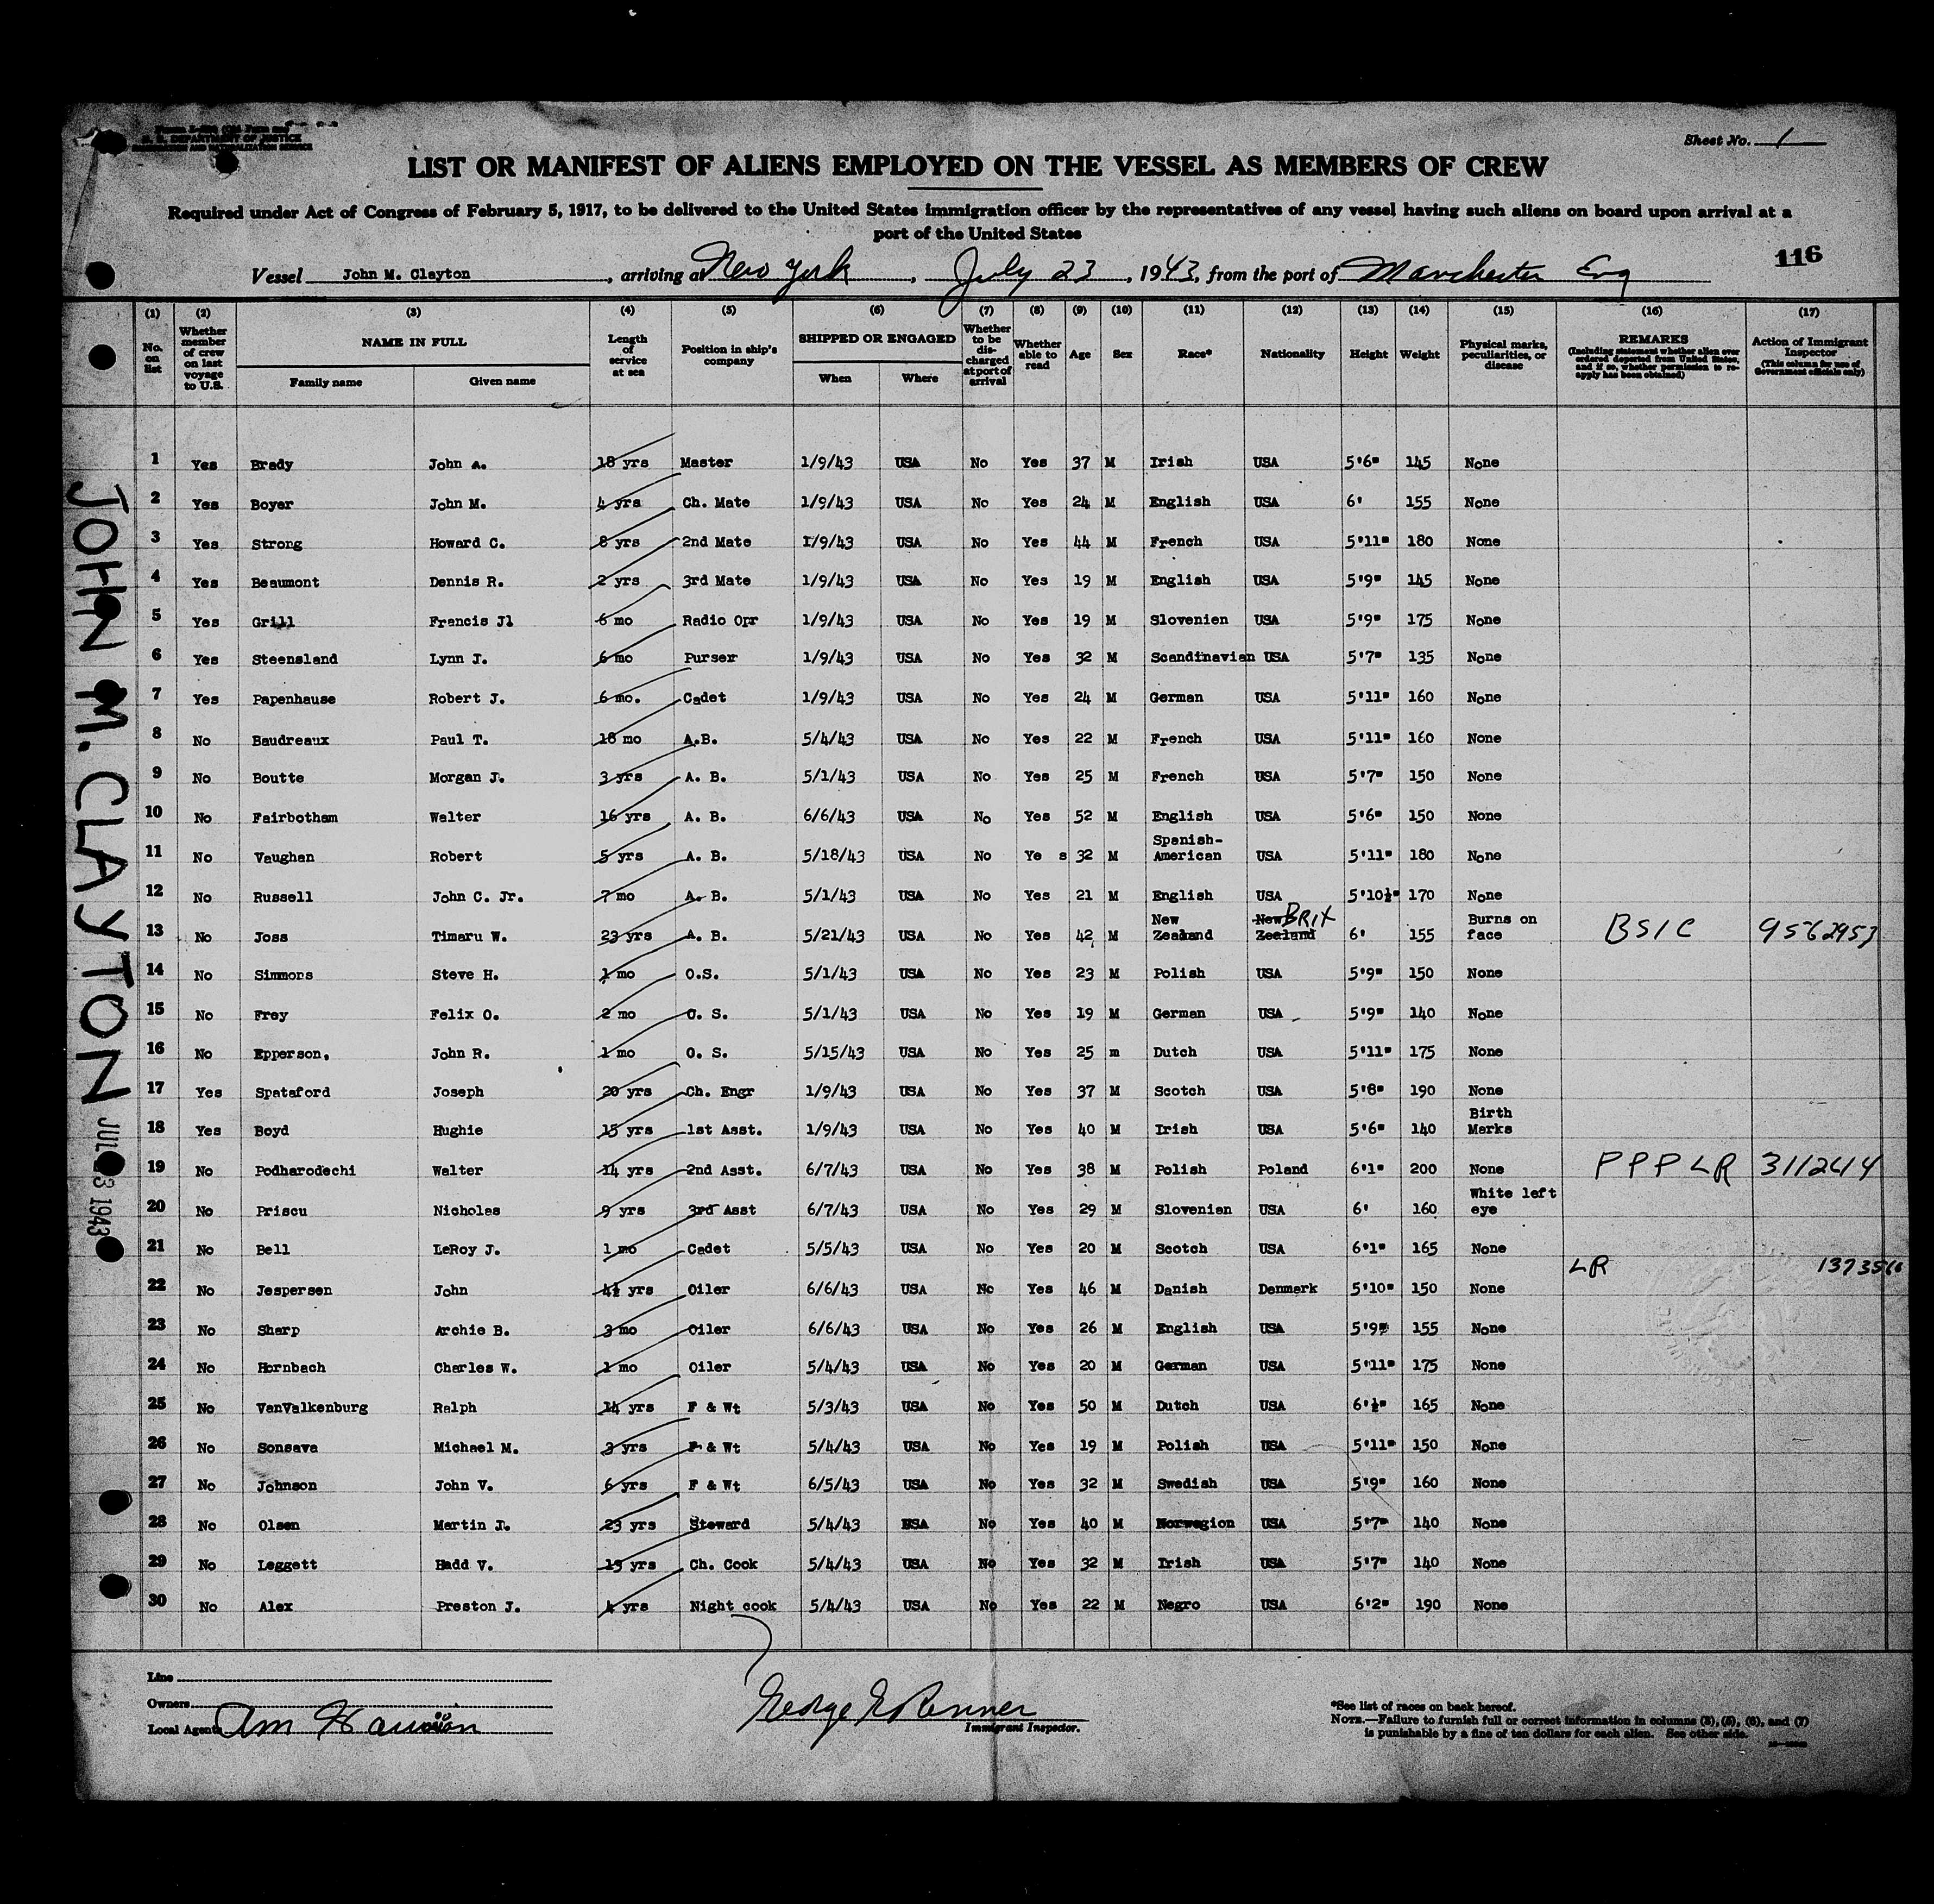 U. S. DEPARTMENT OF JUSTICE
IMMIGRATION AND NATURALIZATION SERVICE
Sheet No. 1
LIST OR MANIFEST OF ALIENS EMPLOYED ON THE VESSEL AS MEMBERS OF CREW
Required under Act of Congress of February 5, 1917, to be delivered to the United States immigration officer by the representatives of any vessel having such aliens on board upon arrival at a
port of the United States
116
Vessel John M. Clayton, arriving at New York, July 23, 1943, from the port of Manchester Eng
(1) No. on list (2) Whether member of crew on last voyage to U.S. (3) NAME IN FULL Family name Given name (4) Length of service at sea (5) Position in ship's company (6) SHIPPED OR ENGAGED When Where (7) Whether to be discharged at port of arrival (8) Whether able to read (9) Age (10) Sex (11) Race* (12) Nationality (13) Height (14) Weight (15) Physical marks, peculiarities, or disease (16) REMARKS (Including statement whether alien ever ordered deported from United States, and if so, whether permission to reapply has been obtained) (17) Action of Immigrant Inspector (This column for use of Government officials only)
1 Yes Brady John A. 18 yrs Master 1/9/43 USA No Yes 37 M Irish USA 5'6" 145 None
2 Yes Boyer John M. 4 yrs Ch. Mate 1/9/43 USA No Yes 24 M English USA 6' 155 None
3 Yes Strong Howard C. 8 yrs 2nd Mate 1/9/43 USA No Yes 44 M French USA 5'11" 180 None
4 Yes Beaumont Dennis R. 2 yrs 3rd Mate 1/9/43 USA No Yes 19 M English USA 5'9" 145 None
5 Yes Grill Francis Jl 6 mo Radio Opr 1/9/43 USA No Yes 19 M Slovenien USA 5'9" 175 None
6 Yes Steensland Lynn J. 6 mo Purser 1/9/43 USA No Yes 32 M Scandinavian USA 5'7" 135 None
7 Yes Papenhause Robert J. 6 mo. Cadet 1/9/43 USA No Yes 24 M German USA 5'11" 160 None
8 No Baudreaux Paul T. 18 mo A.B. 5/4/43 USA No Yes 22 M French USA 5'11" 160 None
9 No Boutte Morgan J. 3 yrs A. B. 5/1/43 USA No Yes 25 M French USA 5'7" 150 None
10 No Fairbotham Walter 16 yrs A. B. 6/6/43 USA No Yes 52 M English USA 5'6" 150 None
11 No Vaughan Robert 5 yrs A. B. 5/18/43 USA No Ye s 32 M Spanish-American USA 5'11" 180 None
12 No Russell John C. Jr. 7 mo A. B. 5/1/43 USA No Yes 21 M English USA 5'10½" 170 None
13 No Joss Timaru W. 23 yrs A. B. 5/21/43 USA No Yes 42 M New Zealand New Zealand BRIT 6' 155 Burns on face BSIC 9562953
14 No Simmons Steve H. 1 mo O.S. 5/1/43 USA No Yes 23 M Polish USA 5'9" 150 None
15 No Frey Felix O. 2 mo O. S. 5/1/43 USA No Yes 19 M German USA 5'9" 140 None
16 No Epperson, John R. 1 mo O. S. 5/15/43 USA No Yes 25 m Dutch USA 5'11" 175 None
17 Yes Spataford Joseph 20 yrs Ch. Engr 1/9/43 USA No Yes 37 M Scotch USA 5'8" 190 None
18 Yes Boyd Hughie 15 yrs 1st Asst. 1/9/43 USA No Yes 40 M Irish USA 5'6" 140 Birth Marks
19 No Podharodechi Walter 14 yrs 2nd Asst. 6/7/43 USA No Yes 38 M Polish Poland 6'1" 200 None PPPLR
20 No Priscu Nicholas 9 yrs 3rd Asst 6/7/43 USA No Yes 29 M Slovenien USA 6' 160 White left eye
21 No Bell LeRoy J. 1 mo Cadet 5/5/43 USA No Yes 20 M Scotch USA 6'1" 165 None
22 No Jespersen John 4½ yrs Oiler 6/6/43 USA No Yes 46 M Danish Denmark 5'10" 150 None LR
23 No Sharp Archie B. 3 mo Oiler 6/6/43 USA No Yes 26 M English USA 5'9" 155 None
24 No Hornbach Charles W. 1 mo Oiler 5/4/43 USA No Yes 20 M German USA 5'11" 175 None
25 No VanValkenburg Ralph 14 yrs F & Wt 5/3/43 USA No Yes 50 M Dutch USA 6'½" 165 None
26 No Sonsava Michael M. 3 yrs F & Wt 5/4/43 USA No Yes 19 M Polish USA 5'11" 150 None
27 No Johnson John V. 6 yrs F & Wt 6/5/43 USA No Yes 32 M Swedish USA 5'9" 160 None
28 No Olsen Martin J. 23 yrs Steward 5/4/43 USA No Yes 40 M Norwegion USA 5'7" 140 None
29 No Leggett Hadd V. 15 yrs Ch. Cook 5/4/43 USA No Yes 32 M Irish USA 5'7" 140 None
30 No Alex Preston J. 4 yrs Night cook 5/4/43 USA No Yes 22 M Negro USA 6'2" 190 None
JOHN M. CLAYTON
JUL 23 1943
Line
Owners
Local Agents Am Hawaiian
Immigrant Inspector.
*See list of races on back hereof.
NOTE.—Failure to furnish full or correct information in columns (3), (5), (6), and (7)
is punishable by a fine of ten dollars for each alien. See other side.